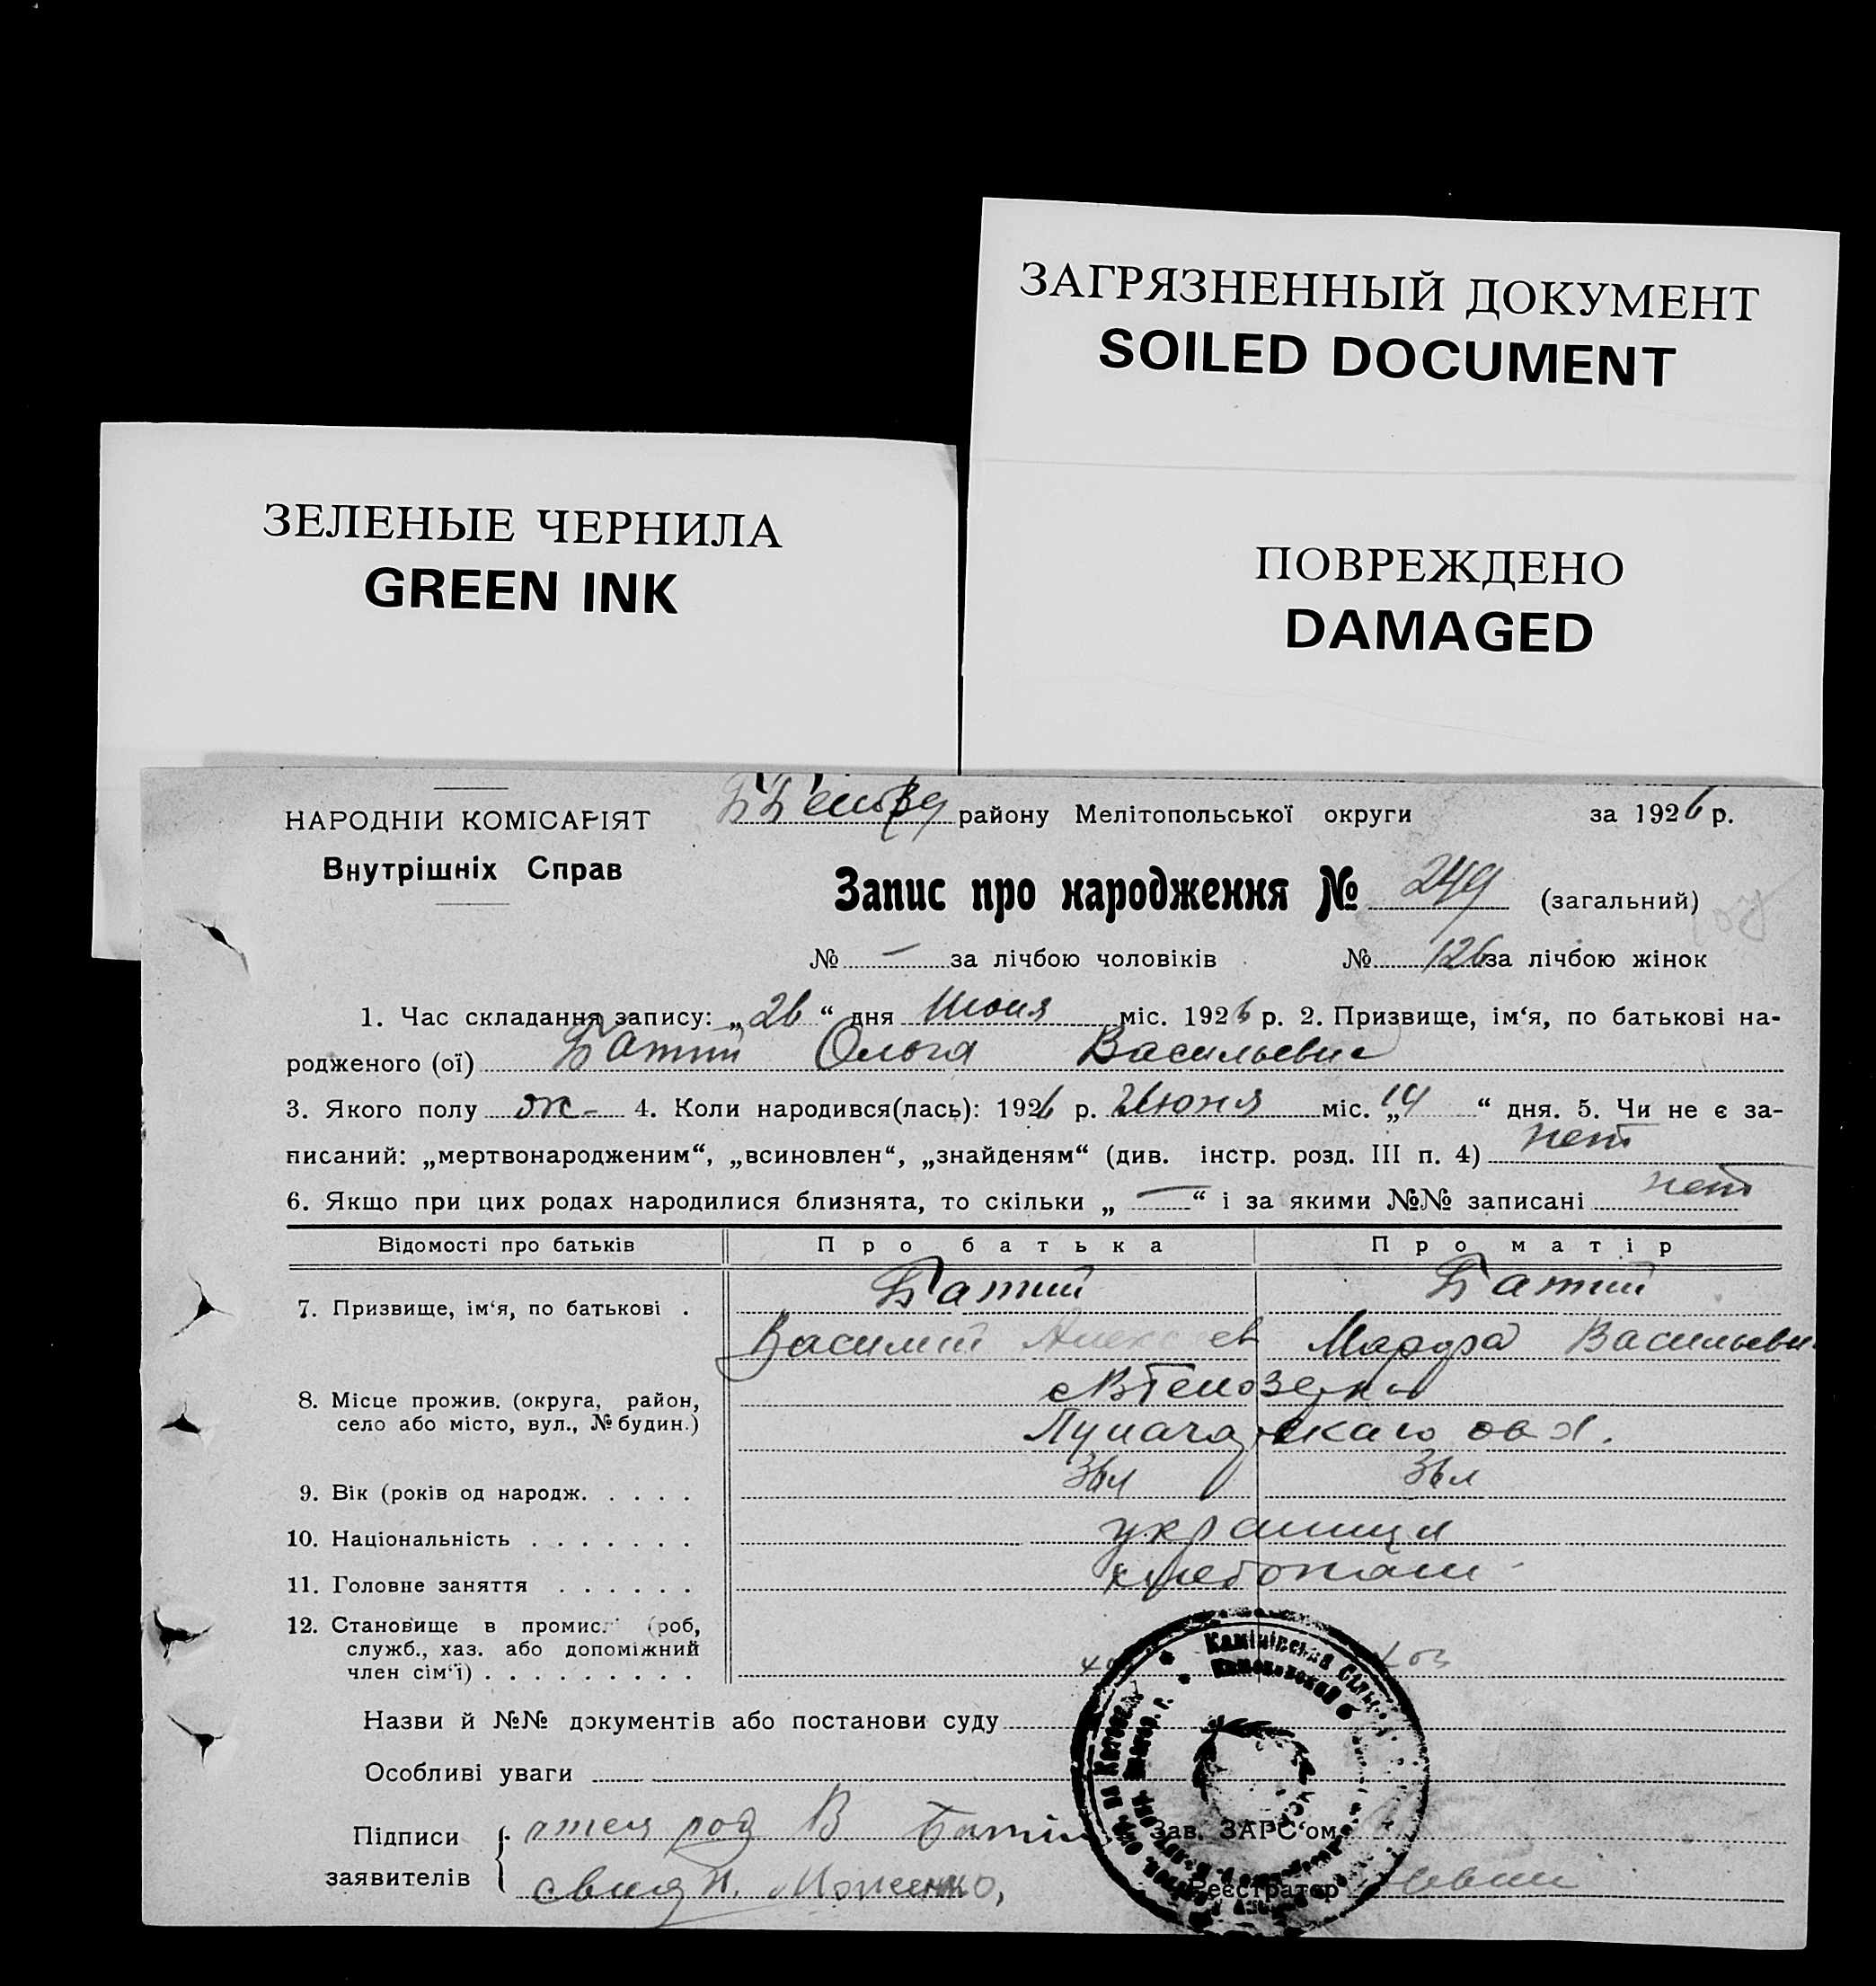 ЗАГРЯЗНЕННЫЙ ДОКУМЕНТ
SOILED DOCUMENT
ЗЕЛЕНЫЕ ЧЕРНИЛА
GREEN INK
ПОВРЕЖДЕНО
DAMAGED
НАРОДНІЙ КОМІСАРІЯТ
Внутрішніх Справ
району Мелітопольської округи за 1926 р.
Запис про народження № 249 (загальний)
№ — за лічбою чоловіків № 126 за лічбою жінок
1. Час складання запису: „26“ дня Июня міс. 1926 р. 2. Призвище, ім‘я, по батькові на-
родженого (ої) Батий Ольга Васильевна
3. Якого полу ж - 4. Коли народився(лась): 1926 р. Июня міс. „14“ дня. 5. Чи не є за-
писаний: „мертвонародженим“, „всиновлен“, „знайденям“ (див. інстр. розд. III п. 4) нет
6. Якщо при цих родах народилися близнята, то скільки „—“ і за якими №№ записані нет
Відомості про батьків Про батька Про матір
7. Призвище, ім‘я, по батькові . Батий Батий
Василий Алексеев Марфа Васильевн
8. Місце прожив. (округа, район,
село або місто, вул., № будин.)
9. Вік (років од народж. . . . . 36 л 36 л
10. Національність . . . . . . . украинця
11. Головне заняття . . . . . . хлебопаш
12. Становище в промис. (роб,
служб., хаз. або допоміжний
член сім‘ї) . . . . . . . . . хоз
Назви й №№ документів або постанови суду
Особливі уваги
Підписи
заявителів
отец род В Батий
Зав. ЗАГС‘ом
Реєстратор